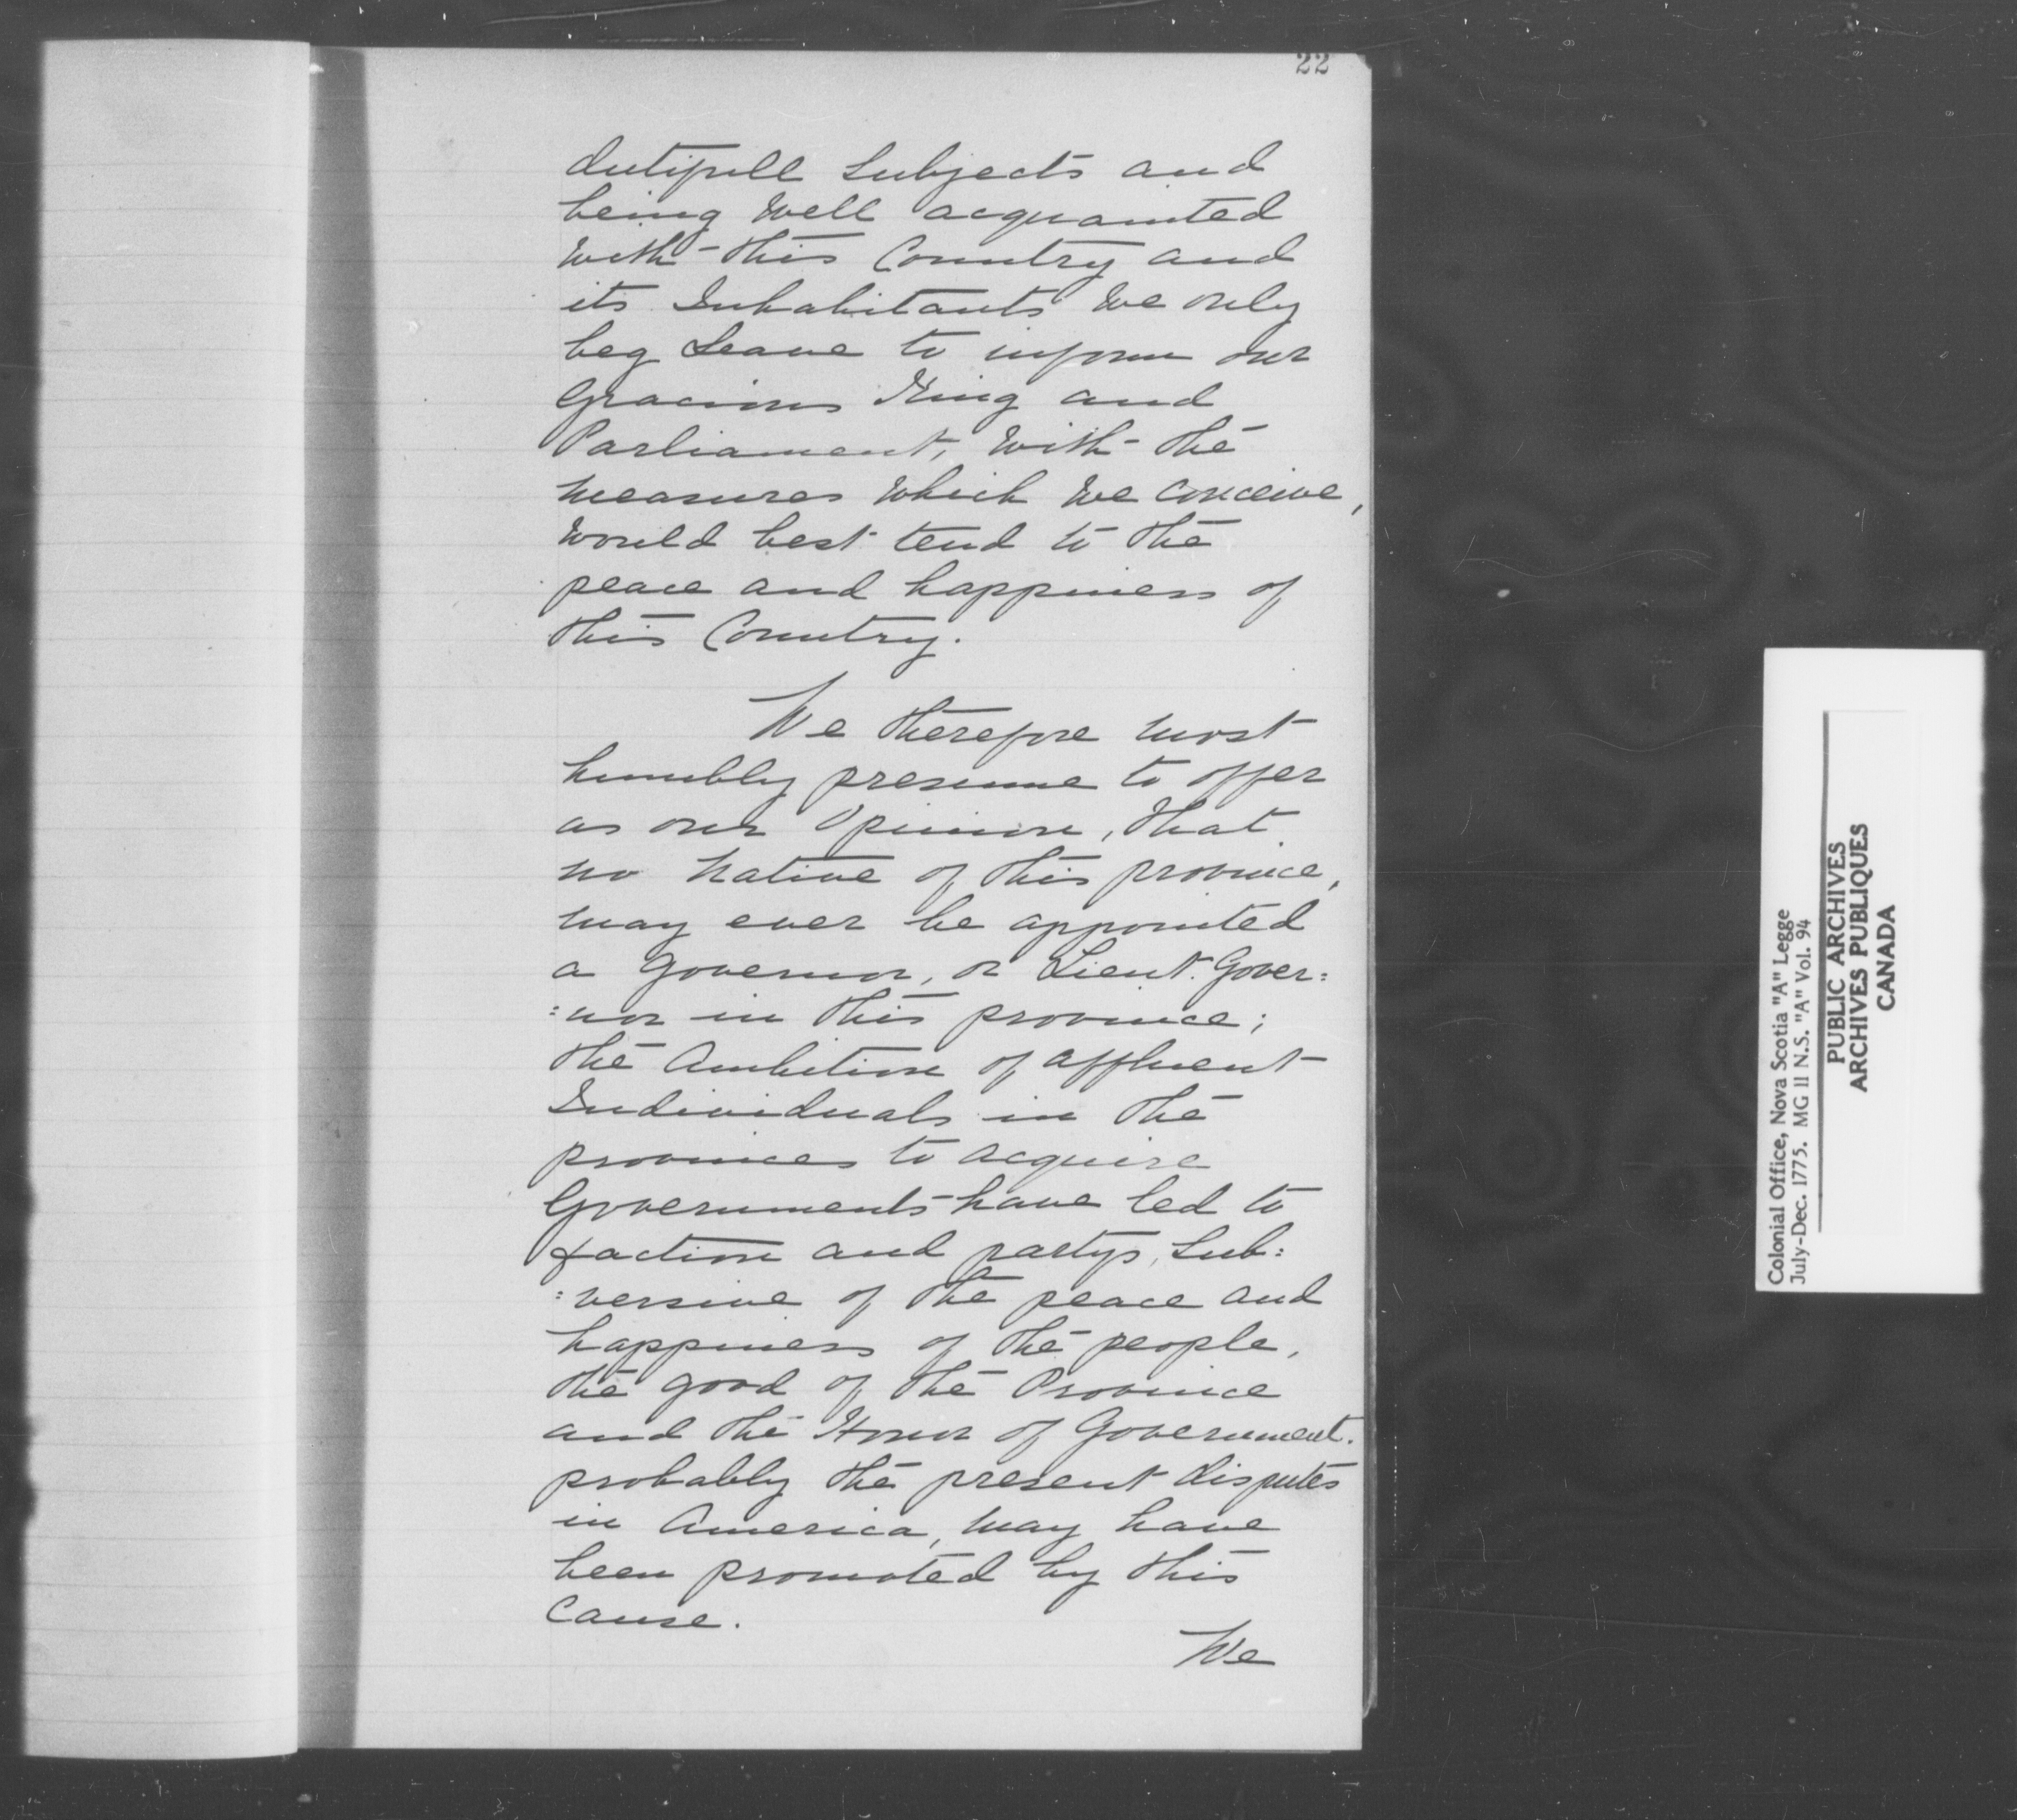 22
dutifull Subjects and
being Well acquainted
With this Country and
its Inhabitants We only
beg Leave to inform our
Gracious King and
Parliament, With the
measures Which We Conceive,
Would best tend to the
peace and happiness of
this Country.
We therefore most
humbly presume to offer
as our Opinion, that
no Native of this province,
may ever be appointed
a Governor, or Lieut. Gover:
:nor in this province;
the Ambition of affluent
Individuals in the
provinces to acquire
Governments have led to
faction and partys, Sub:
:versive of the peace and
happiness of the people,
the good of the Province
and the Honor of Government.
probably the present disputes
in America, may have
been promoted by this
Cause.
We
Colonial Office, Nova Scotia "A" Legge
July-Dec. 1775. MG 11 N.S. "A" Vol. 94
PUBLIC ARCHIVES
ARCHIVES PUBLIQUES
CANADA